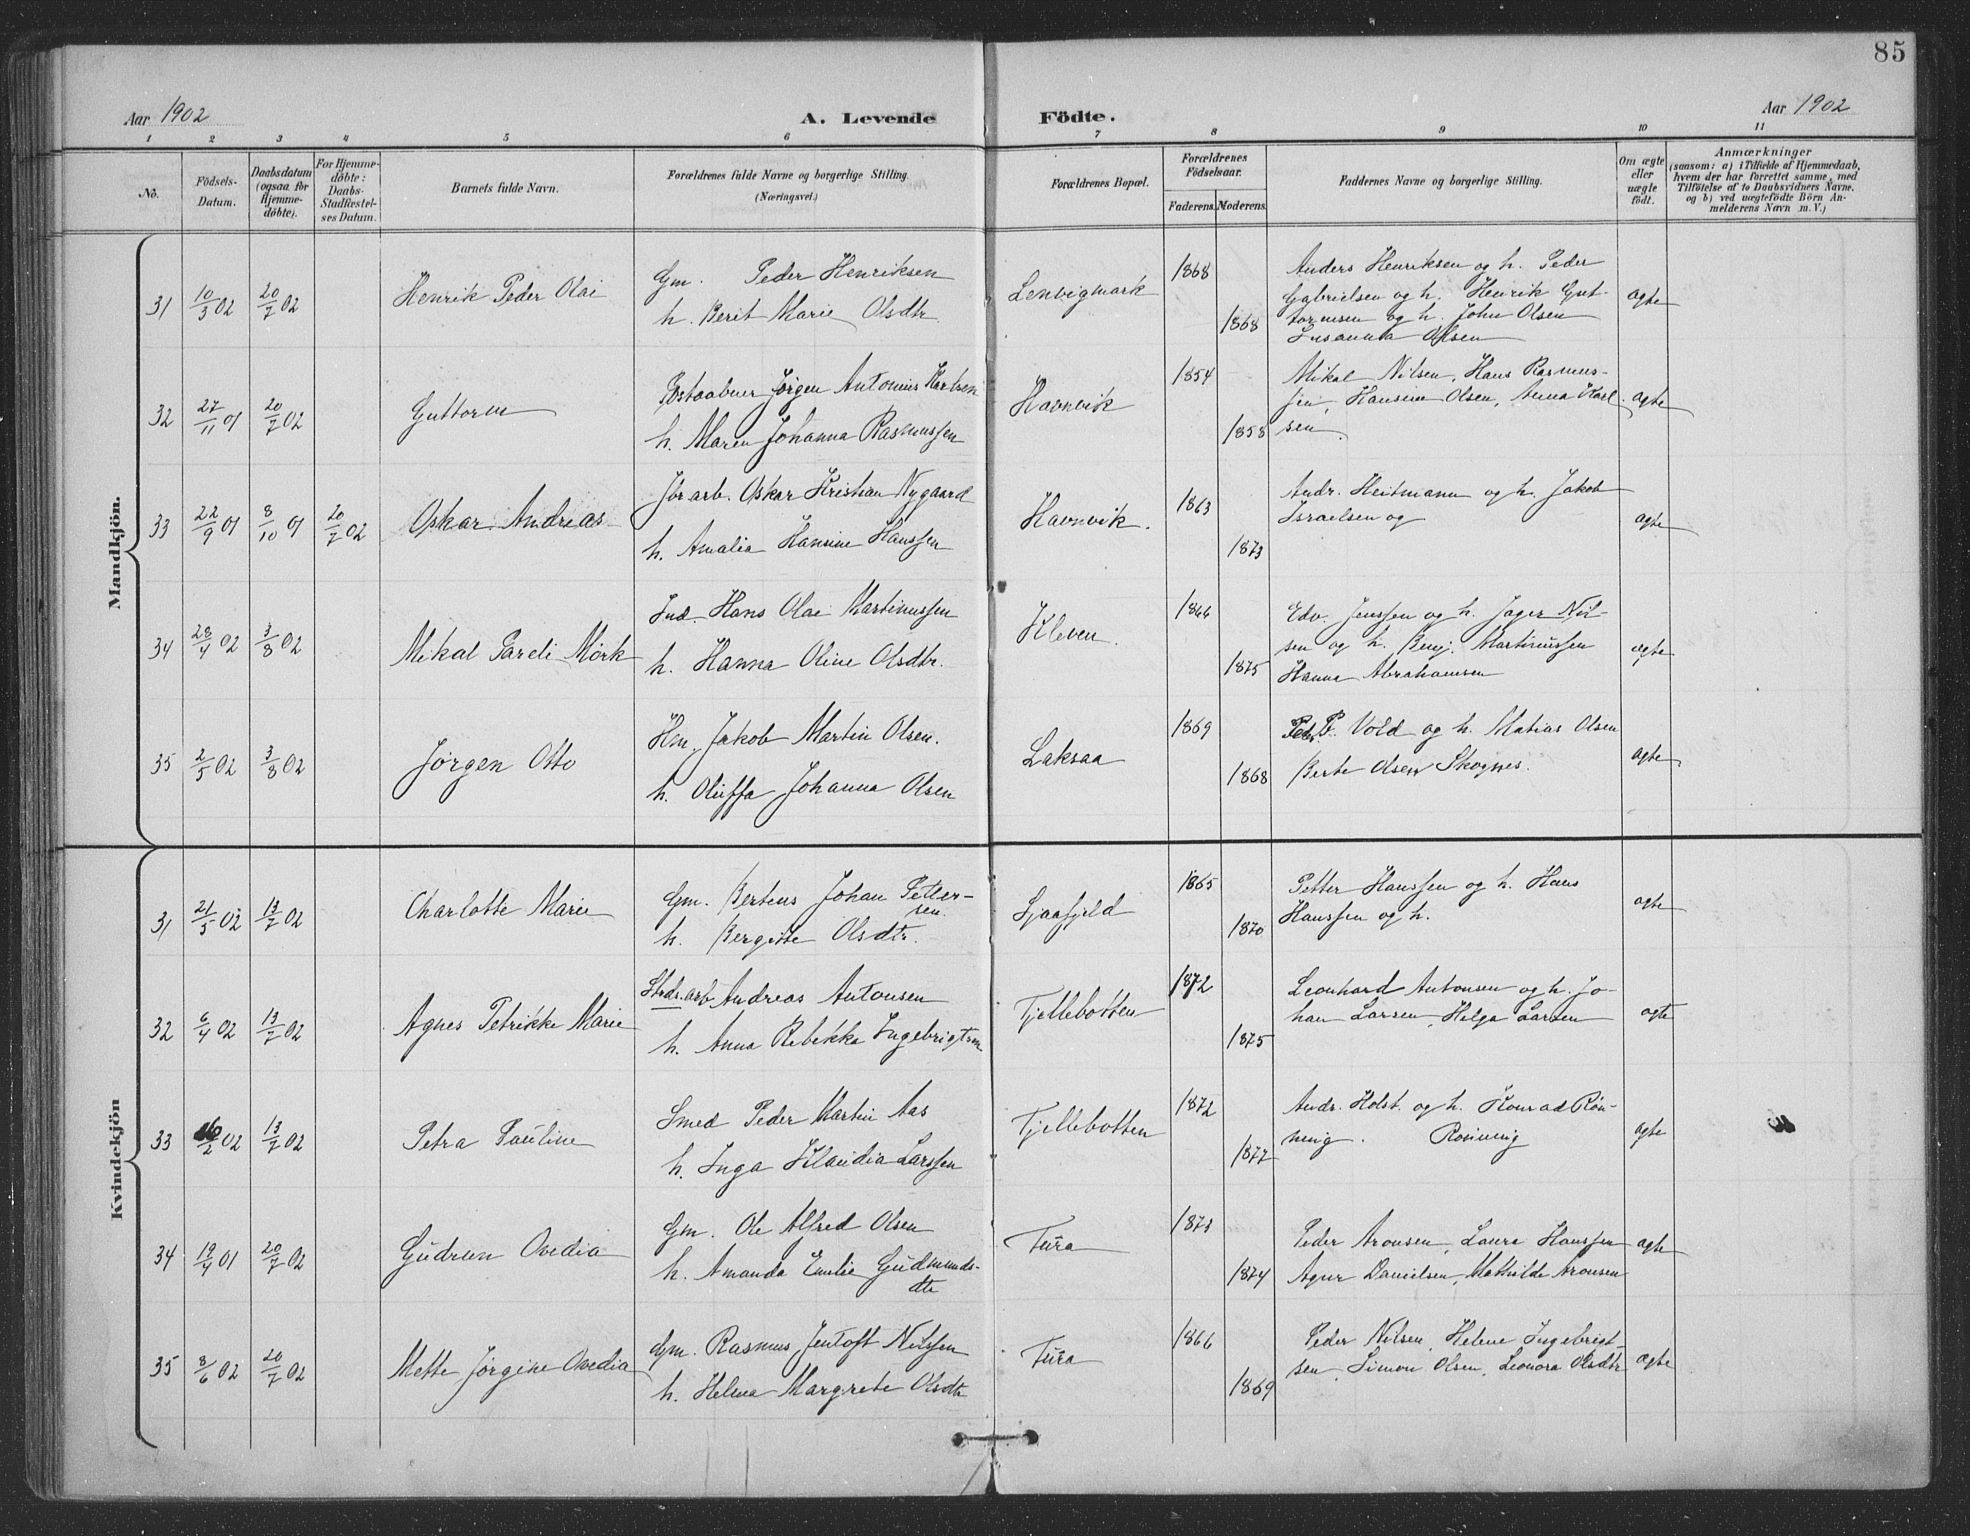 85
Aar 1902
A. Levende
Födte.
Aar 1902
1 2 3 4 5 6 7 8 9 10 11
No.
Födsels-
Datum.
Daabsdatum
(ogsaa for
Hjemme-
døbte).
For Hjemme-
döbte:
Daabs-
Stadfæstel-
ses Datum.
Barnets fulde Navn.
Forældrenes fulde Navne og borgerlige Stilling.
(Næringsvei.)
Forældrenes Bopæl.
Forældrenes
Födselsaar.
Faderens. Moderens.
Faddernes Navne og borgerlige Stilling.
Om ægte
eller
uægte
födt.
Anmærkninger
(saasom: a) i Tilfælde af Hjemmedaab,
hvem der har forrettet samme, med
Tilföielse af to Daabsvidners Navne.
og b) ved uægtefödte Börn An-
melderens Navn m. V.)
Mandkjön.
31 10/3 02 20/7 02 Henrik Peder Olai
Gm. Peder Henriksen
h. Berit Marie Olsdtr
Lenvigmark
1868
1868
Anders Henriksen og h. Peder
Gabrielsen og h. Henrik Gut-
tormsen og h. John Olsen
Susanna Olsen
ægte
32 27/11 01 20/7 02 Guttorm
Postaabner Jørgen Antonius Karlsen
h. Maren Johanna Rasmussen
Havnvik
1854
1858
Mikal Nilsen, Hans Rasmus-
sen, Hansine Olsen, Anna Karl
sen.
ægte
33 22/9 01 8/10 01 20/7 02 Oskar Andreas
Jörarb. Oskar Kristian Nygaard
h. Amalia Hansine Hanssen
Havnvik.
1863
1873
Andr. Heitmann og h. Jakob
Israelsen og
ægte
34 28/4 02 3/8 02 Mikal Pareli Mørk
Ind. Hans Olai Martinussen
h. Hanna Oline Olsdtr.
Kleven.
1866
1875
Edv. Jenssen og h. Jager Nil-
sen og h. Benj. Martinussen
Hanna Abrahamsen
ægte
35 2/5 02 3/8 02 Jørgen Otto
Hm. Jakob Martin Olsen.
h. Oluffa Johanna Olsen
Laksaa
1869
1868
Peder P. Vold og h. Matias Olsen
Berte Olsen Skognes.
ægte
Kvindekjön
31 21/5 02 13/7 02 Charlotte Marie
Gm. Bertens Johan Petter-
sen.
h. Bergitte Olsdtr.
Sjaafjeld
1865
1870
Petter Hanssen og h. Hans
Hanssen og h.
ægte
32 6/4 02 13/7 02 Agnes Petrikke Marie
Strdr.arb Andreas Antonsen
h. Anna Rebekka Ingebrigtsen
Fjellebotten
1872
1875
Leonhard Antonsen og h. Jo-
han Larsen, Helga Larsen
ægte
33 /2 02 13/7 02 Petra Pauline
Smed Peder Martin Aas
h. Inga Klaudia Larssen
Fjellebotten
1872
1877
Andr. Holst. og h. Konrad Rön-
ning. Rönning
ægte
34 19/4 01 20/7 02 Gudrun Ovedia
Gm. Ole Alfred Olsen
h. Amanda Emilie Gudmunds-
dtr
Fura
1873
1874
Peder Aronsen, Laura Hanssen
Agnr Danielsen, Mathilde Aronsen
ægte
35 8/6 02 20/7 02 Mette Jørgine Ovedia
Gm. Rasmus Jentoft Nilssen
h. Helma Margrete Olsdtr
Fura
1866
1869
Peder Nilsen, Helene Ingebrigt-
sen, Simon Olsen, Leonora Olsdtr
ægte